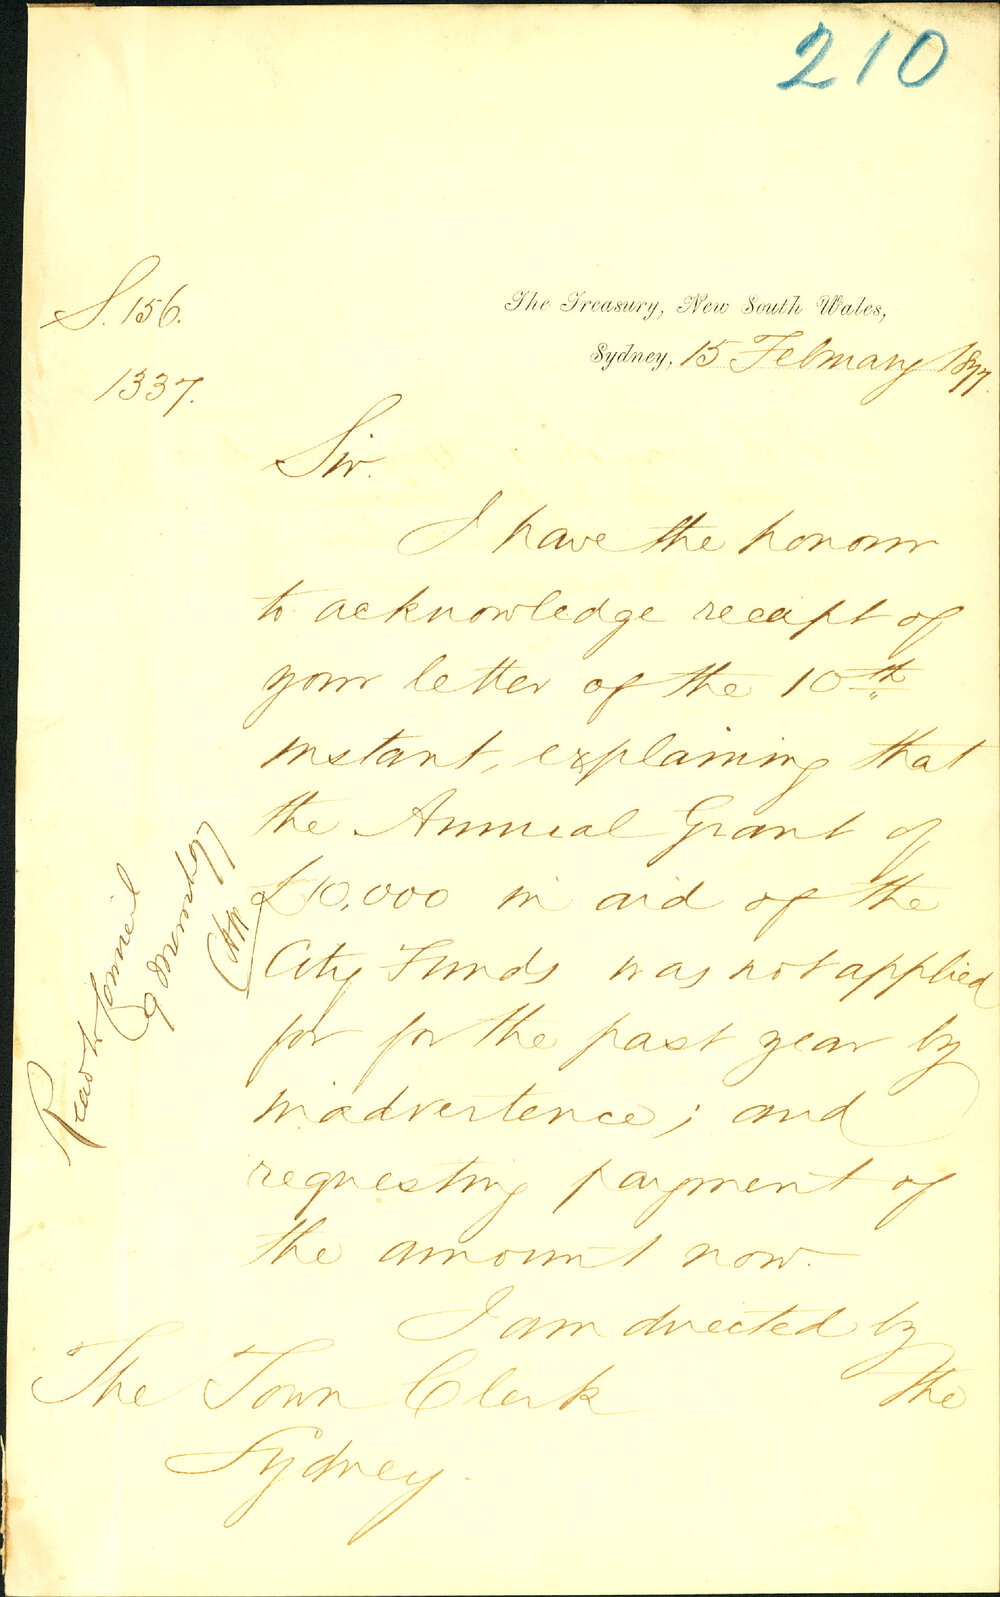 210
S. 156.
1337.
The Treasury, New South Wales,
Sydney, 15 February 1877.
Sir.
I have the honour
to acknowledge receipt of
your letter of the 10th
instant, explaining that
the Annual Grant of
£10,000 in aid of the
City Funds was not applied
for for the past year by
inadvertence; and
requesting payment of
the amount now.
I am directed by
the
The Town Clerk
Sydney.
Read to Council